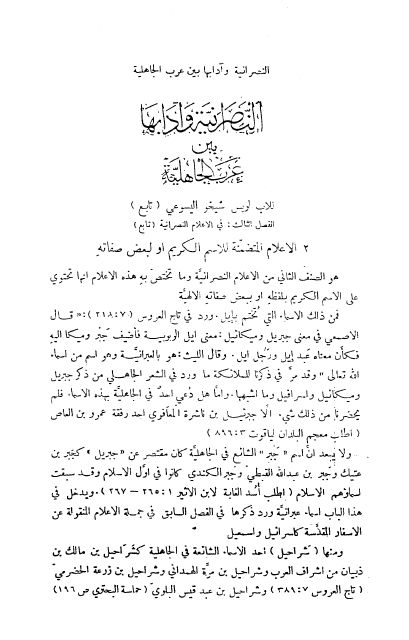 النصرانية وآدابها بين عرب الجاهلية
النصرانية وآدابها
بين
عرب الجاهلية
للاب لويس شيخو اليسوعي ( تابع )
الفصل الثالث: في الاعلام النصرانية (تابع)
٢ الاعلام المتضمنة للاسم الكريم او لبعض صفاته
هو الصنف الثاني من الاعلام النصرانيَّة وما يختصّ به هذه الاعلام انها تحتوي
على الاسم الكريم بلفظه او ببعض صفاته الالهية
فمن ذلك الاسماء التي تُختم بإيل. ورد في تاج العروس (٢١٨:٧):« قال
الاصمعي في معنى جبريل وميكائيل: معنى ايل الربوبية فأُضيف جَبْر وميكا اليه
فكأنَّ معناه عبد إيل ورَجُل ايل. وقال الليث: هو بالعبرانيَّة وهو اسم من اسماء
الله تعالى » وقد مرَّ في ذكرنا للملائكة ما ورد في الشعر الجاهلي من ذكر جبريل
وميكائيل واسرافيل وما اشبهها. وامَّا هل دُعي احدٌ في الجاهليَّة بهذه الاسماء فلم
يحضرنا من ذلك شيء. الَّا جبرئيل بن ناشرة المعافري احد رفقة عمرو بن العاص
( اطلب معجم البلدان لياقوت ٨٩٦:٣ )
ولا يبعد انَّ اسم « جَبْر » الشائع في الجاهليَّة كان مقتصر عن « جبريل » كجَبْر بن
عتيك وجَبْر بن عبدالله القبطيّ وجَبْر الكندي كانوا في اوَّل الاسلام وقد سبقت
اسماؤهم الاسلام ( اطلب أُسد الغابة لابن الاثير ٢٦٥:١ – ٢٦٧ ). ويدخل في
هذا الباب اسماء عبرانيَّة ورد ذكرها في الفصل السابق في جملة الاعلام المنقولة عن
الاسفار المقدَّسة كاسرائيل واسمعيل
ومنها ( شراحيل ) احد الاسماء الشائعة في الجاهلية كشَراحيل بن مالك بن
ذبيان من اشراف العرب وشراحيل بن مرَّة الهمداني وشراحيل بن زرعة الحضرميّ
( تاج العروس ٣٨٩:٧ ) وشراحيل بن عبد قيس البلوي ( حماسة البحتري ص ١٩٦ )